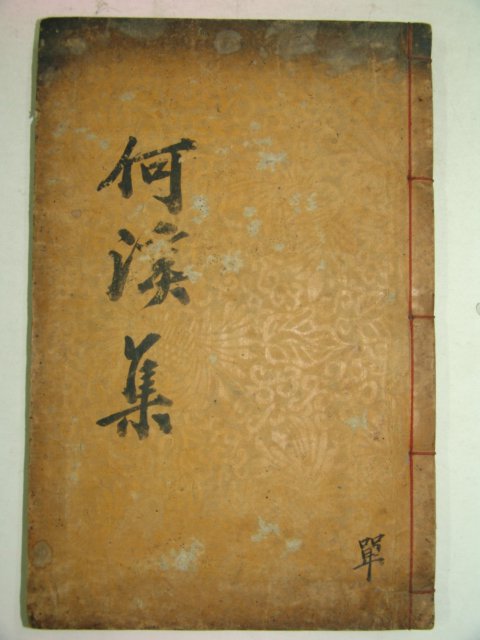 何溪集
單